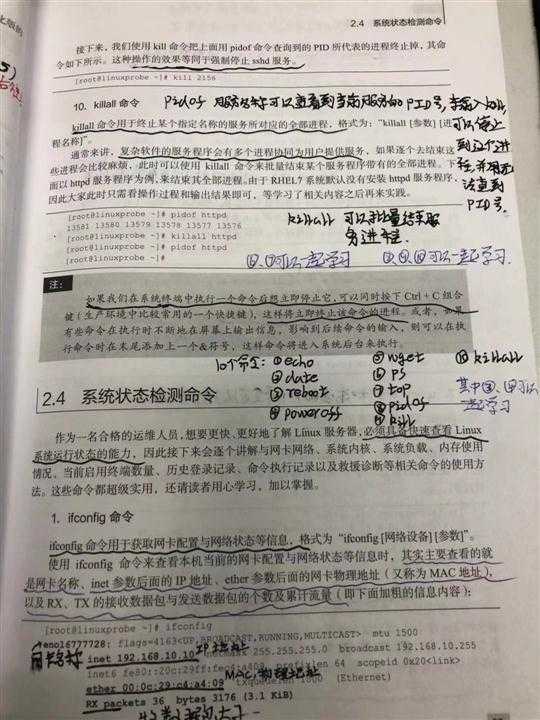 2.4 系统状态检测命令
接下来，我们使用 kill 命令把上面用 pidof 命令查询到的 PID 所代表的进程终止掉，其命
令如下所示。这种操作的效果等同于强制停止 sshd 服务。
[root@linuxprobe ~]# kill 2156
10. killall 命令
pidof 服务名称可以查看到当前服务的PID号,
killall 命令用于终止某个指定名称的服务所对应的全部进程，格式为：“killall [参数] [进
程名称]”。
PID号.
通常来讲，复杂软件的服务程序会有多个进程协同为用户提供服务，如果逐个去结束这
些进程会比较麻烦，此时可以使用 killall 命令来批量结束某个服务程序带有的全部进程。下
面以 httpd 服务程序为例，来结束其全部进程。由于 RHEL7 系统默认没有安装 httpd 服务程序，
因此大家此时只需看操作过程和输出结果即可，等学习了相关内容之后再来实践。
[root@linuxprobe ~]# pidof httpd
13581 13580 13579 13578 13577 13576
[root@linuxprobe ~]# killall httpd
[root@linuxprobe ~]# pidof httpd
[root@linuxprobe ~]#
killall 可以批量结束服
务进程.
可以一起学习
可以一起学习.
注：
如果我们在系统终端中执行一个命令后想立即停止它，可以同时按下 Ctrl + C 组合
键（生产环境中比较常用的一个快捷键），这样将立即终止该命令的进程。或者，如果
有些命令在执行时不断地在屏幕上输出信息，影响到后续命令的输入，则可以在执
行命令时在末尾添加上一个&符号，这样命令将进入系统后台来执行。
10个命令: ①echo ⑤wget ⑩killall
②date ⑥ps
③reboot ⑦top
④poweroff ⑧pidof
⑨kill
一起学习
2.4 系统状态检测命令
作为一名合格的运维人员，想要更快、更好地了解 Linux 服务器，必须具备快速查看 Linux
系统运行状态的能力，因此接下来会逐个讲解与网卡网络、系统内核、系统负载、内存使用
情况、当前启用终端数量、历史登录记录、命令执行记录以及救援诊断等相关命令的使用方
法。这些命令都超级实用，还请读者用心学习，加以掌握。
1. ifconfig 命令
ifconfig 命令用于获取网卡配置与网络状态等信息，格式为“ifconfig [网络设备] [参数]”。
使用 ifconfig 命令来查看本机当前的网卡配置与网络状态等信息时，其实主要查看的就
是网卡名称、inet 参数后面的 IP 地址、ether 参数后面的网卡物理地址（又称为 MAC 地址），
以及 RX、TX 的接收数据包与发送数据包的个数及累计流量（即下面加粗的信息内容）：
[root@linuxprobe ~]# ifconfig
eno16777728: flags=4163<UP,BROADCAST,RUNNING,MULTICAST> mtu 1500
网卡名称 IP地址
inet 192.168.10.10 255.255.255.0 broadcast 192.168.
prefixlen 64 scopeid 0x20<link>
MAC,物理地址
ether 00:0c:29:c4:a4:09 txqueuelen 1000 (Ethernet)
RX packets 36 bytes 3176 (3.1 KiB)